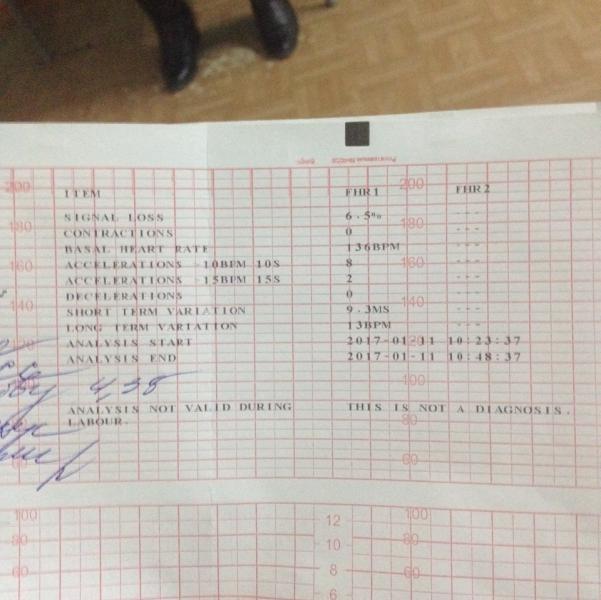 ITEM FHR1 FHR2
SIGNAL LOSS 6.5% ---
CONTRACTIONS 0 ---
BASAL HEART RATE 136BPM ---
ACCELERATIONS -10BPM 10S 8 ---
ACCELERATIONS -15BPM 15S 2 ---
DECELERATIONS 0 ---
SHORT TERM VARIATION 9.3MS ---
LONG TERM VARIATION 13BPM ---
ANALYSIS START 2017-01-11 10:23:37
ANALYSIS END 2017-01-11 10:48:37
ANALYSIS NOT VALID DURING THIS IS NOT A DIAGNOSIS.
LABOUR.
200 200
180 180
160 160
140 140
120 120
100 100
80 80
60 60
100 12 100
80 10 80
60 8 60
6